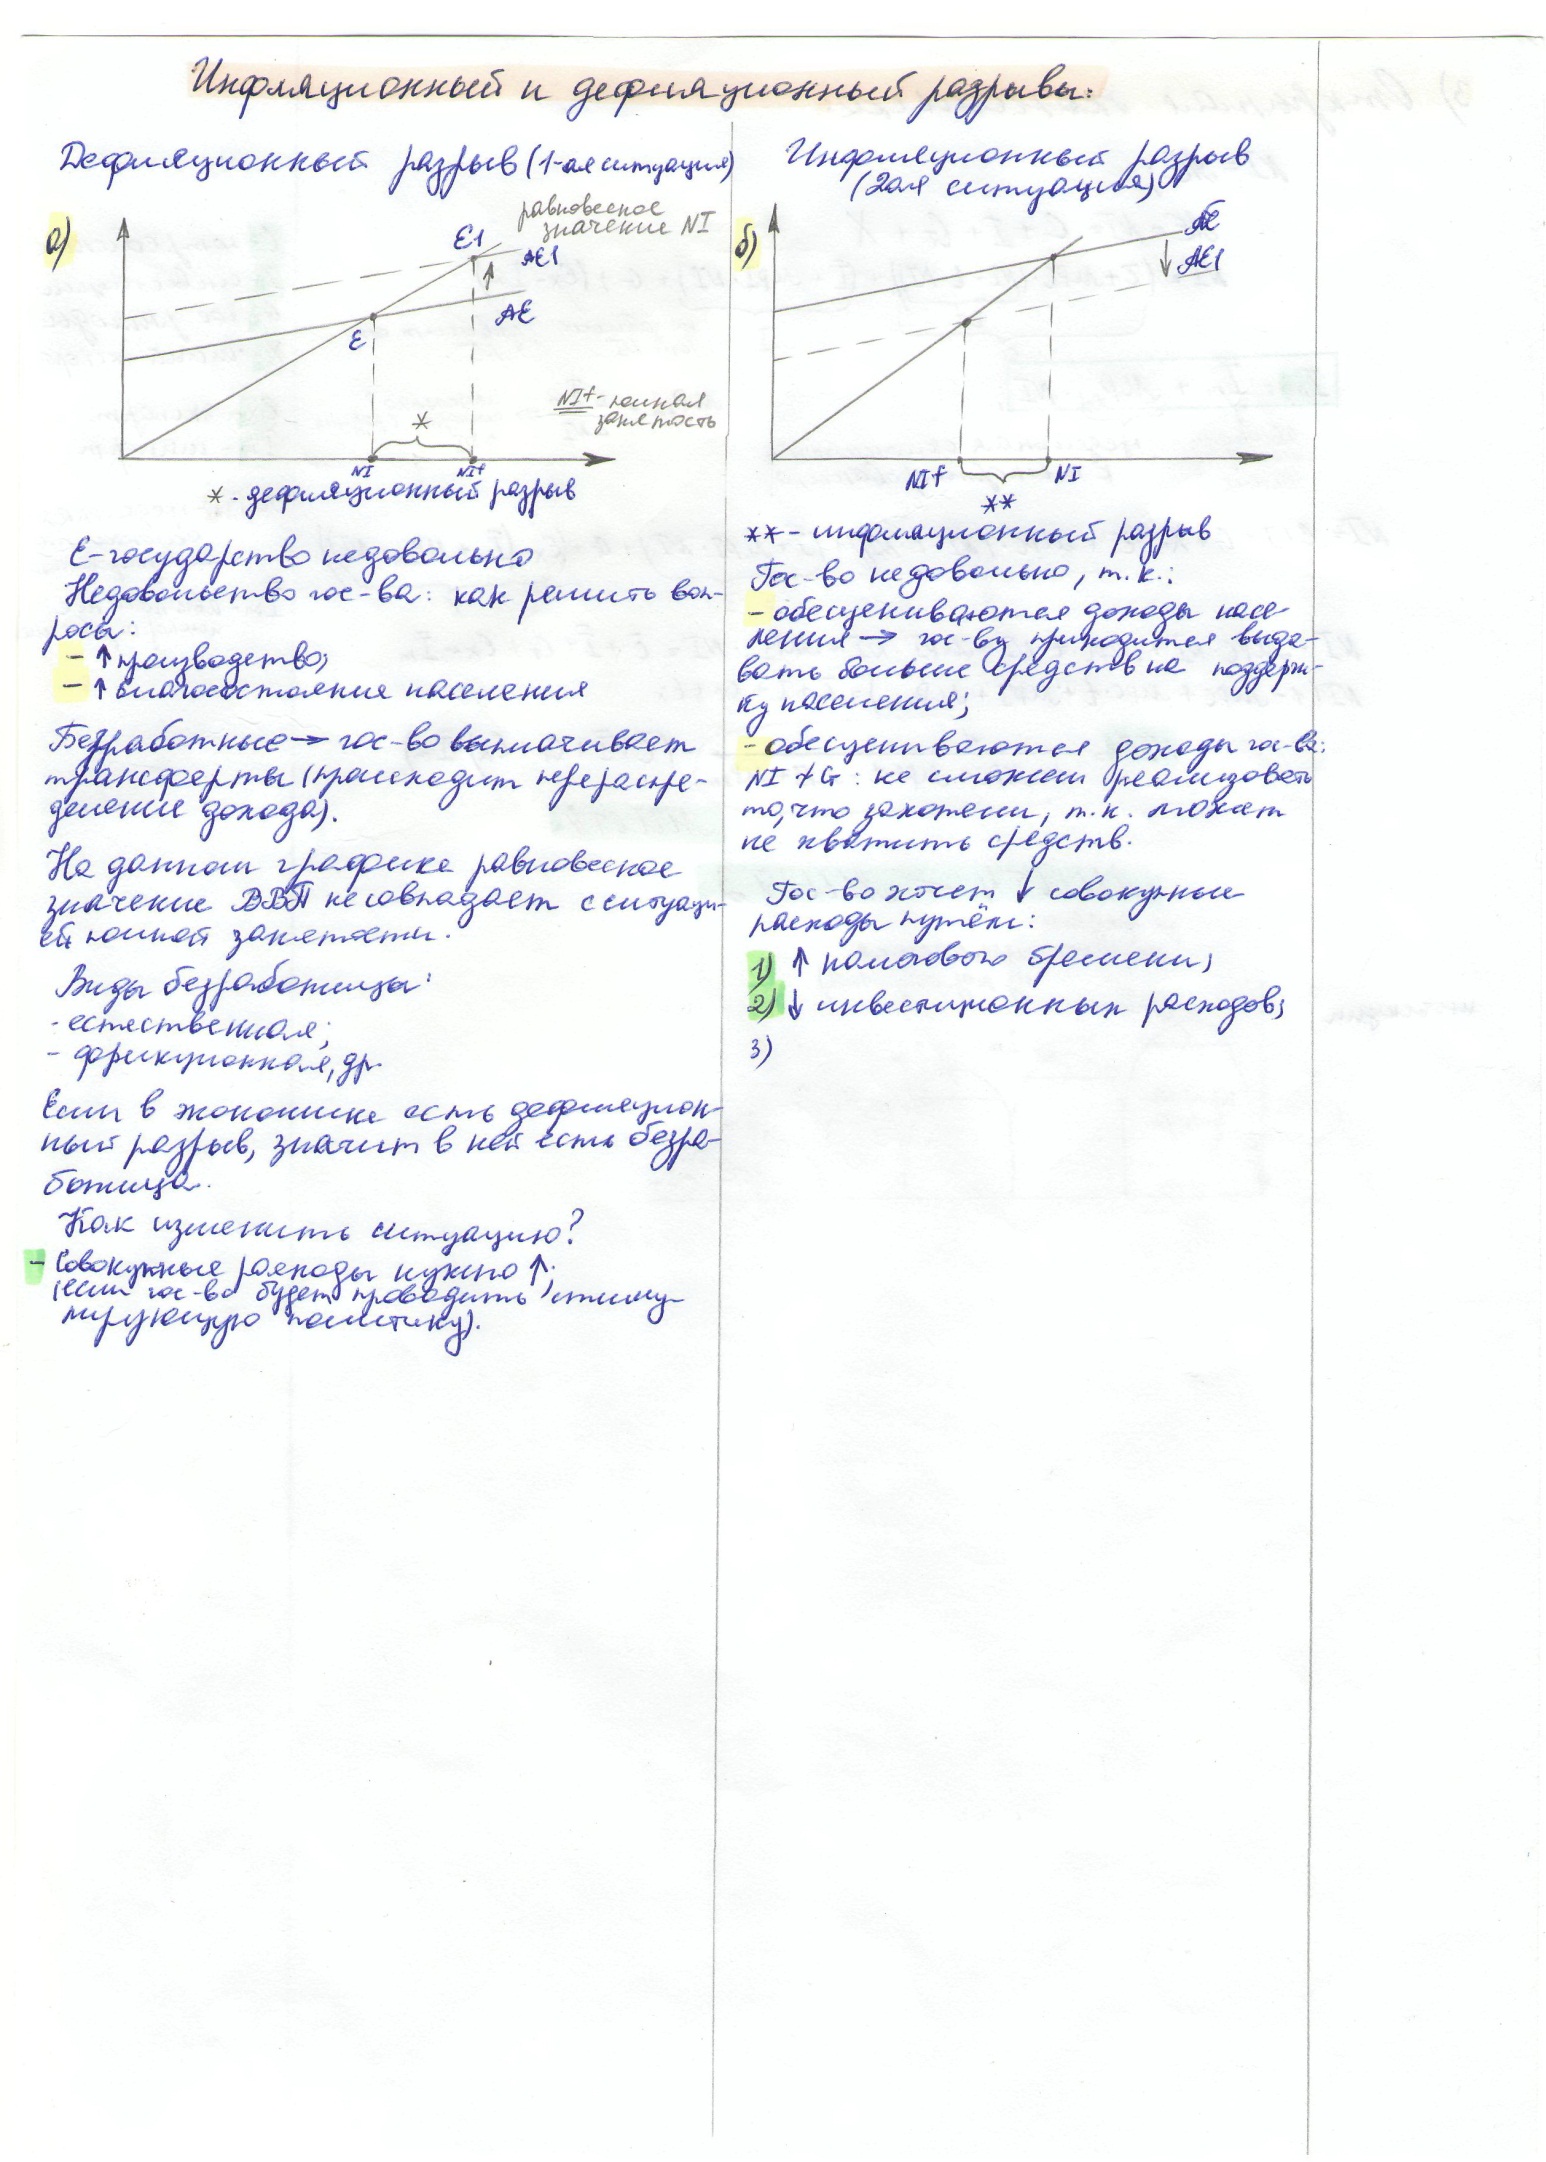 Инфляционный и дефляционный разрывы:
Дефляционный разрыв (1-ая ситуация)
а)
равновесное
значение NI
E1
AE1
AE
E
NIf - полная
занятость
*
NI
NIf
* - дефляционный разрыв
E - государство недовольно
Недовольство гос-ва: как решить воп-
росы:
- ↑ производство;
- ↑ благосостояние населения
Безработные → гос-во выплачивает
трансферты (происходит перераспре-
деление дохода).
На данном графике равновесное
значение ВВП не совпадает с ситуаци-
ей полной занятости.
Виды безработицы:
- естественная;
- фрикционная, др.
Если в экономике есть дефляцион-
ный разрыв, значит в ней есть безра-
ботица.
Как изменить ситуацию?
- Совокупные расходы нужно ↑;
(если гос-во будет проводить стиму-
лирующую политику).
Инфляционный разрыв
(2ая ситуация)
б)
AE
AE1
NIf
NI
**
** - инфляционный разрыв
Гос-во недовольно, т.к.:
- обесцениваются доходы насе-
ления → гос-ву приходится выда-
вать больше средств на поддерж-
ку населения;
- обесцениваются доходы гос-ва:
NI ≠ G: не сможем реализовать
то, что захотели, т.к. может
не хватить средств.
Гос-во хочет ↓ совокупные
расходы путём:
1) ↑ налогового бремени;
2) ↓ инвестиционных расходов;
3)